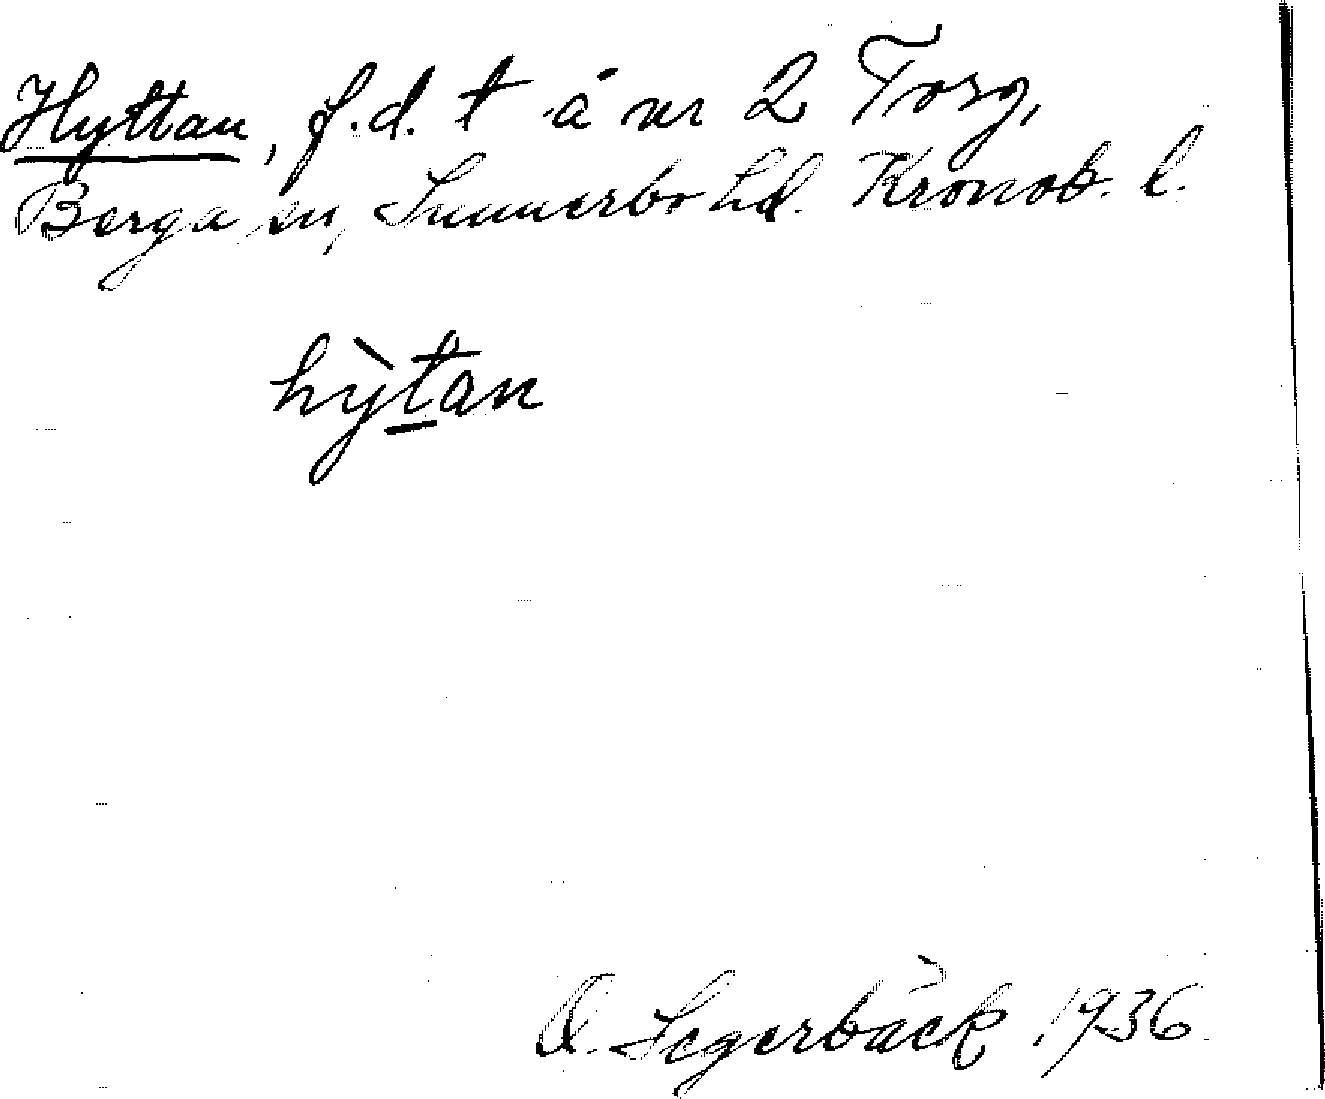 Hyttan, f.d. t å nr 2 Torg,
Berga sn, Sunnerbo hd. Kronob. l.
hỳtan
O. Segerbäck 1936